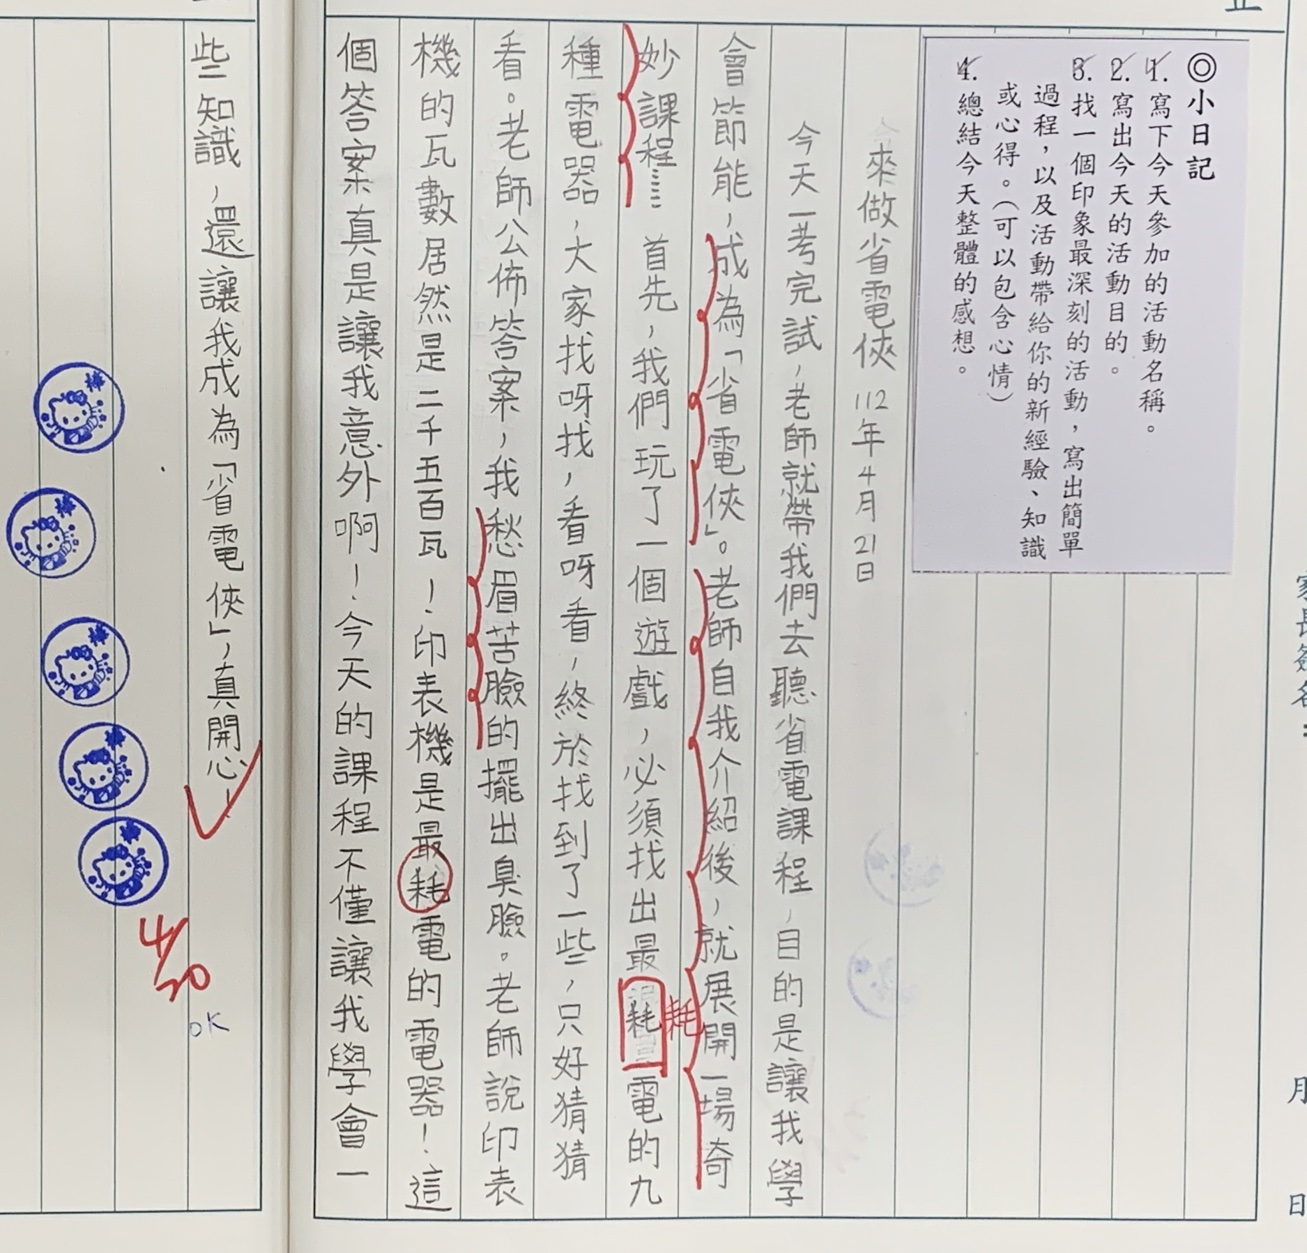 ◎小日記
1.寫下今天參加的活動名稱。
2.寫出今天的活動目的。
3.找一個印象最深刻的活動，寫出簡單
過程，以及活動帶給你的新經驗、知識
或心得。（可以包含心情）
4.總結今天整體的感想。
家長簽名：
月
日
來做省電俠 112年4月21日
今天一考完試，老師就帶我們去聽省電課程，目的是讓我學
會節能，成為「省電俠」。老師自我介紹後，就展開一場奇
妙課程……首先，我們玩了一個遊戲，必須找出最耗電的九
耗
種電器，大家找呀找，看呀看，終於找到了一些，只好猜猜
看。老師公佈答案，我愁眉苦臉的擺出臭臉。老師說印表
機的瓦數居然是二千五百瓦！印表機是最耗電的電器！這
個答案真是讓我意外啊！今天的課程不僅讓我學會一
些知識，還讓我成為「省電俠」，真開心！
棒
棒
棒
棒
棒
4/20
OK